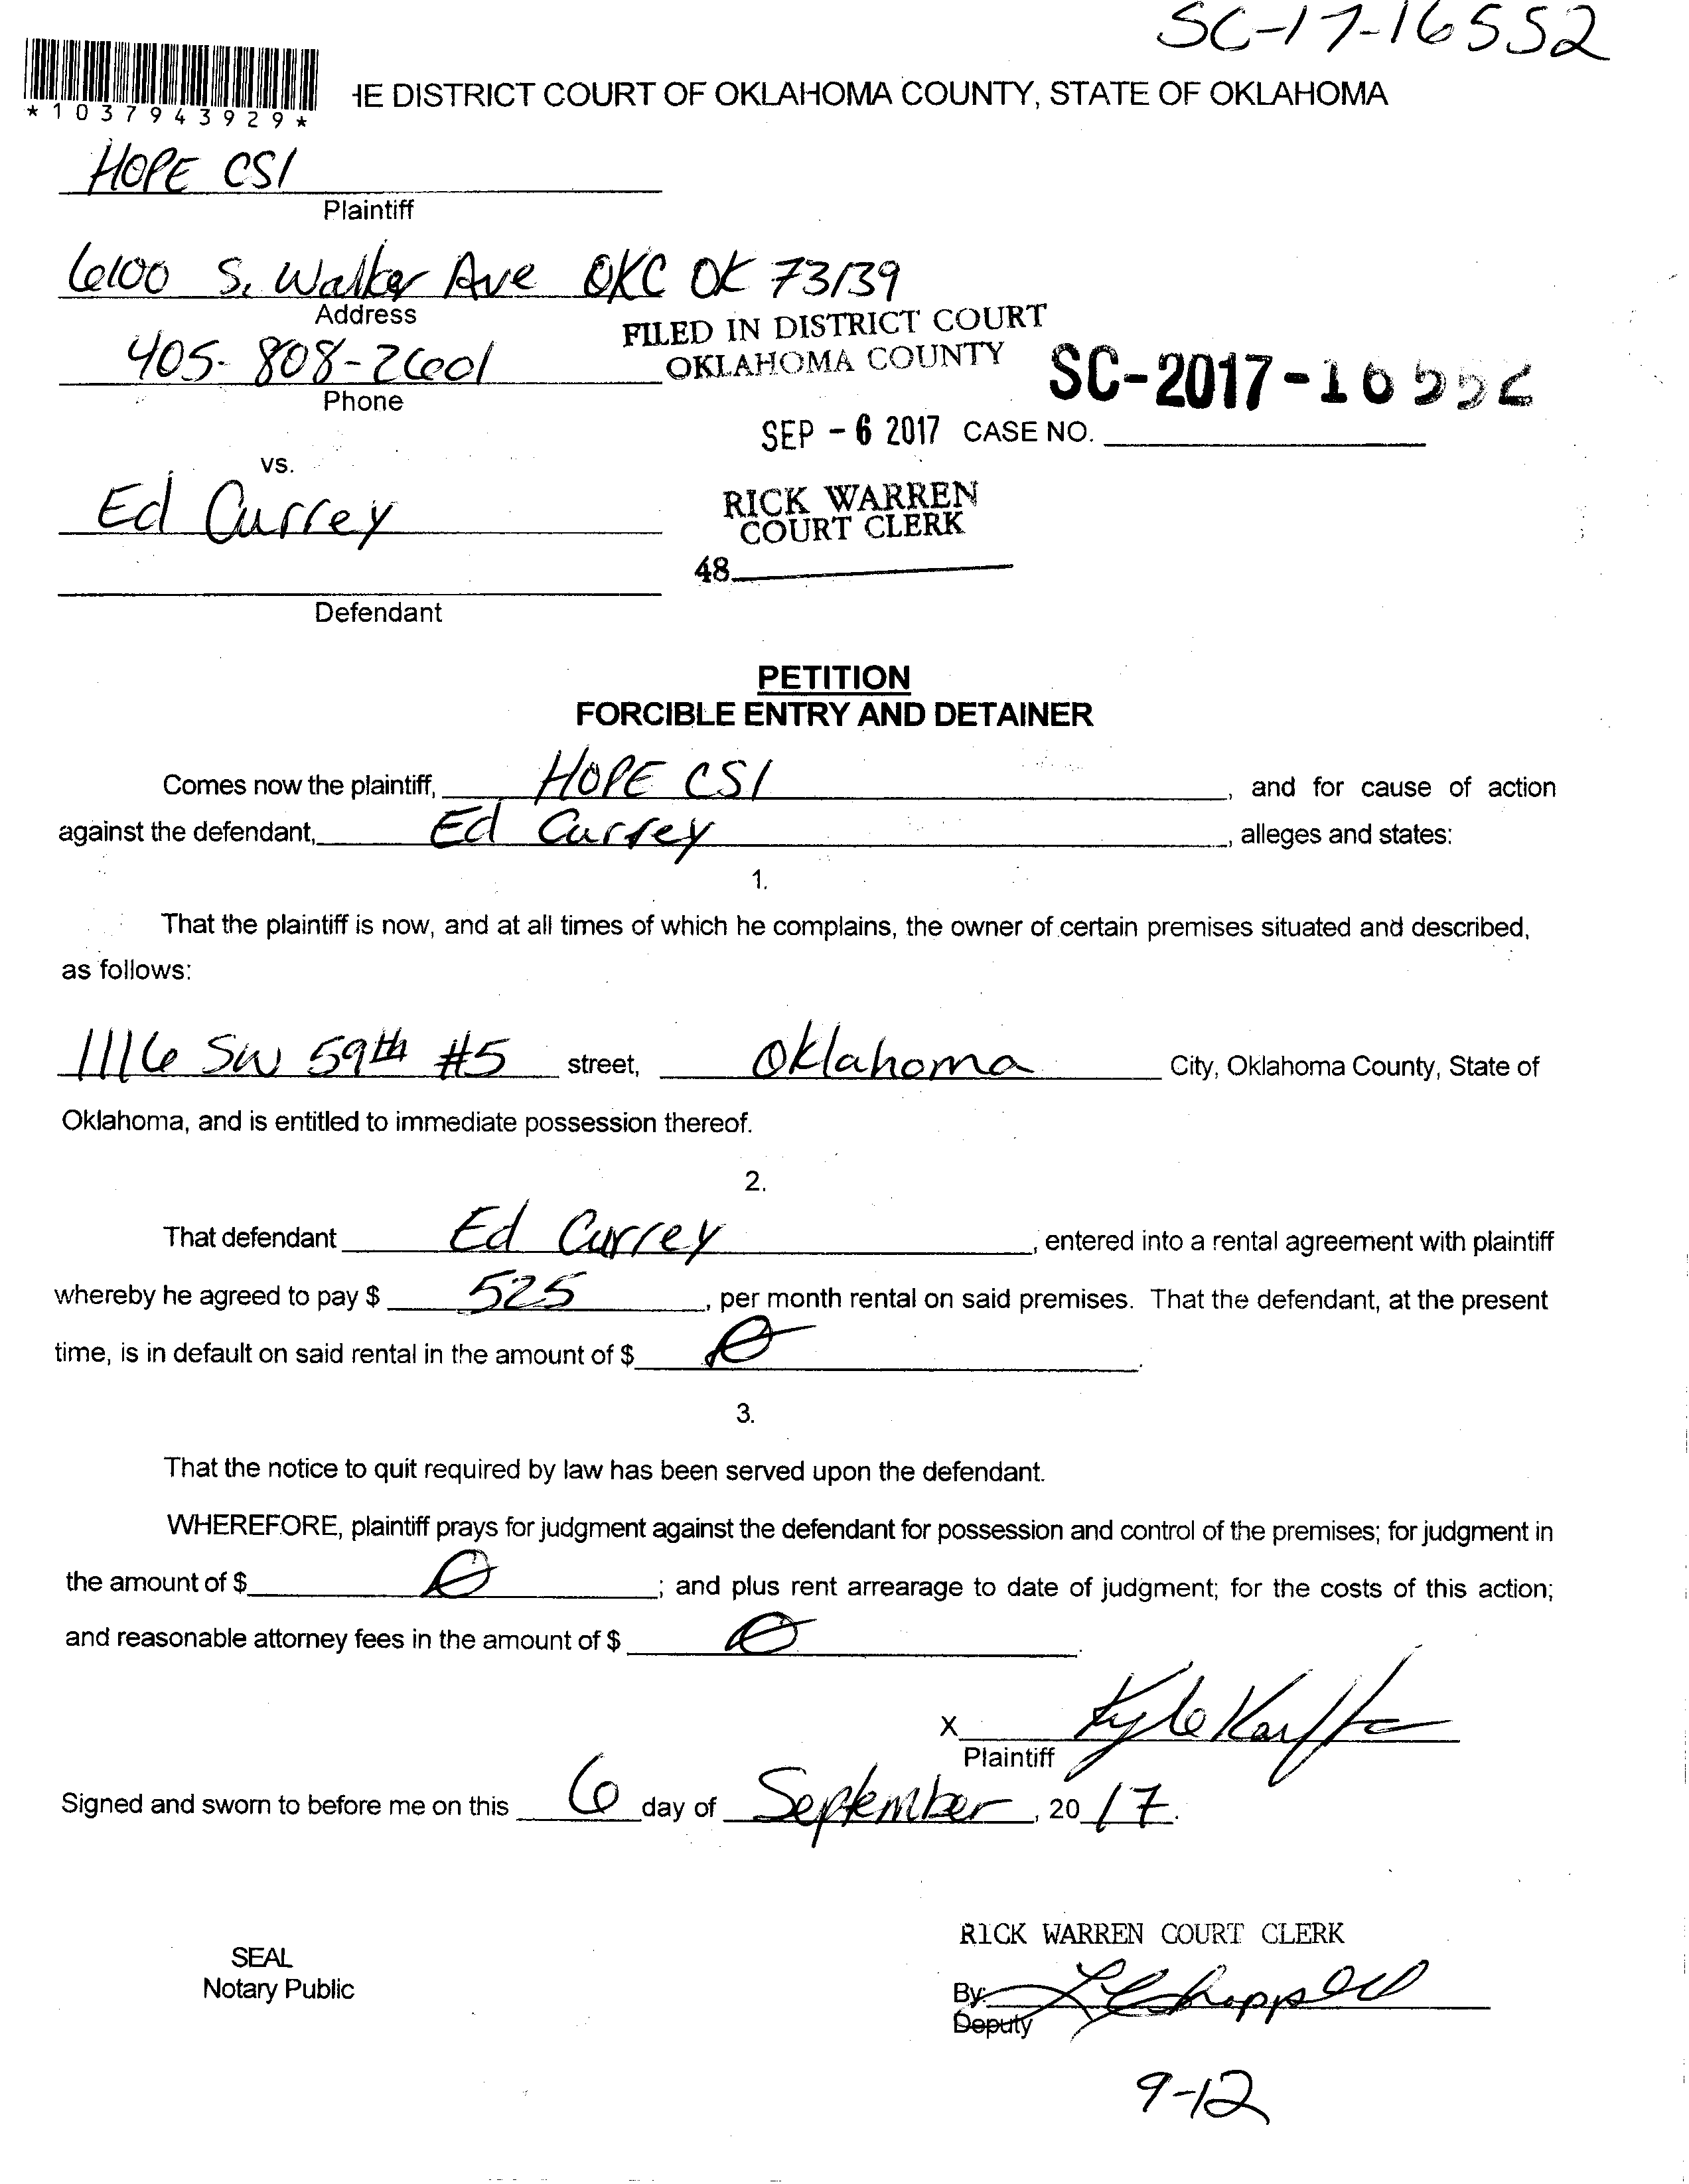 SC-17-16552
*1037943929*
HE DISTRICT COURT OF OKLAHOMA COUNTY, STATE OF OKLAHOMA
HOPE CSI
Plaintiff
6100 S. Walker Ave OKC OK 73139
Address
FILED IN DISTRICT COURT
OKLAHOMA COUNTY
405-808-2601
Phone
SC-2017-16552
SEP - 6 2017 CASE NO.
vs.
Ed Currey
RICK WARREN
COURT CLERK
48
Defendant
PETITION
FORCIBLE ENTRY AND DETAINER
Comes now the plaintiff, HOPE CSI, and for cause of action
against the defendant, Ed Currey, alleges and states:
1.
That the plaintiff is now, and at all times of which he complains, the owner of certain premises situated and described,
as follows:
1116 SW 59th #5 street, Oklahoma City, Oklahoma County, State of
Oklahoma, and is entitled to immediate possession thereof.
2.
That defendant Ed Currey, entered into a rental agreement with plaintiff
whereby he agreed to pay $ 525, per month rental on said premises. That the defendant, at the present
time, is in default on said rental in the amount of $ 0.
3.
That the notice to quit required by law has been served upon the defendant.
WHEREFORE, plaintiff prays for judgment against the defendant for possession and control of the premises; for judgment in
the amount of $ 0; and plus rent arrearage to date of judgment; for the costs of this action;
and reasonable attorney fees in the amount of $ 0.
X Kyle
Plaintiff
Signed and sworn to before me on this 6 day of September, 2017.
RICK WARREN COURT CLERK
SEAL
Notary Public
By:
Deputy
9-12